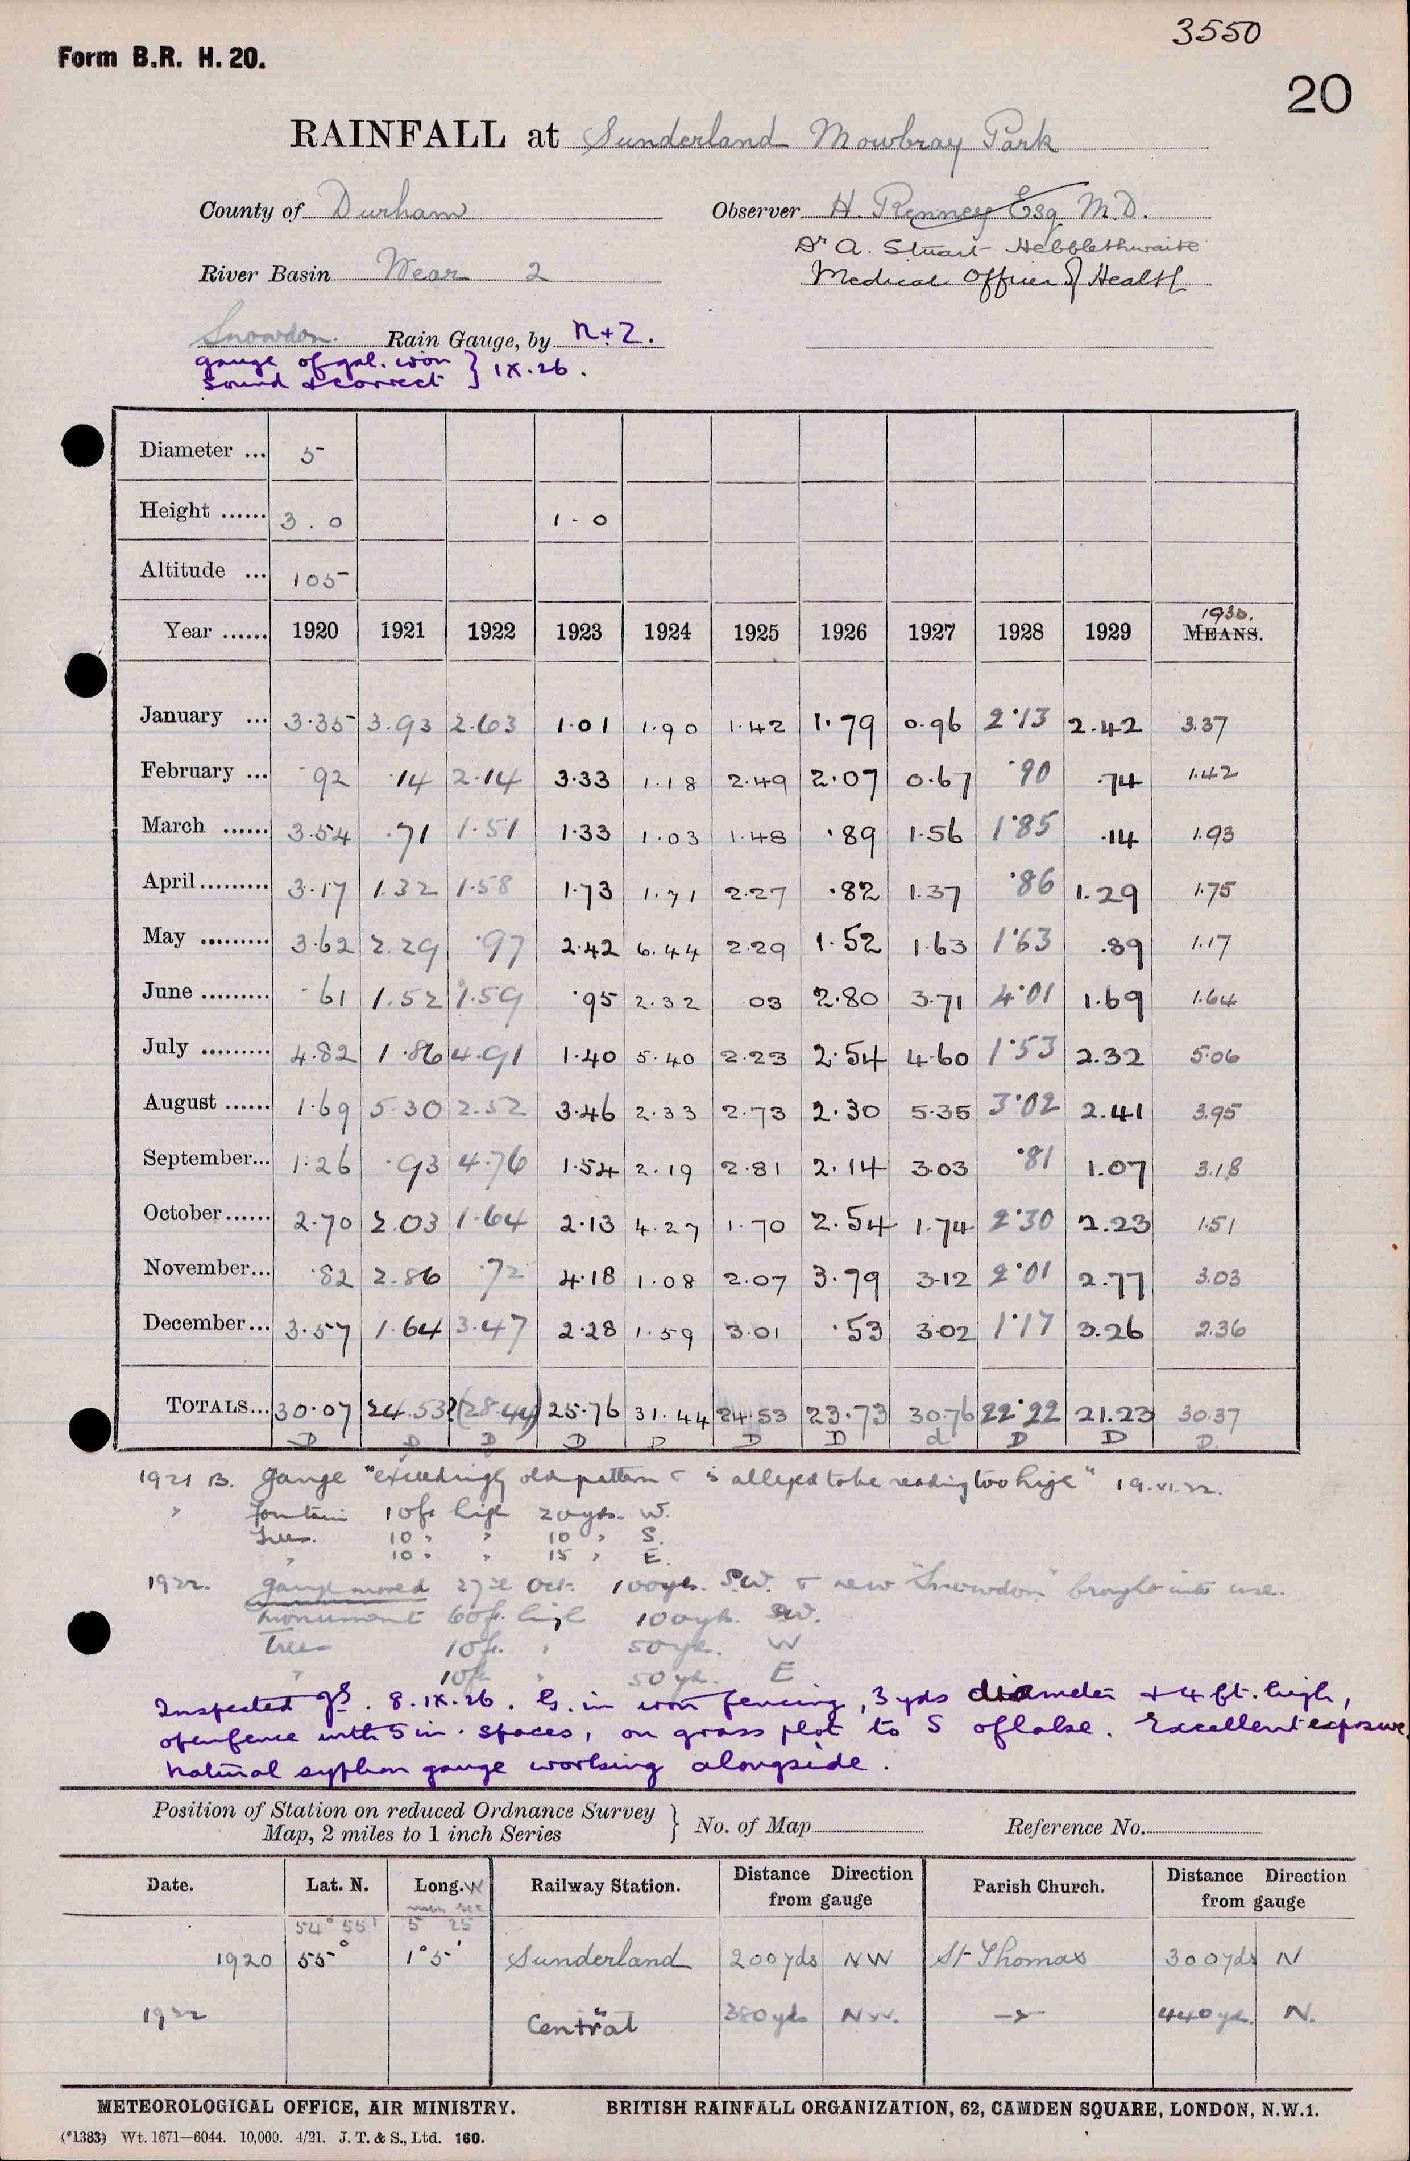 3550
Form B.R. H. 20.
20
RAINFALL at Sunderland Mowbray Park
County of Durham Observer H. Renney Esq. M.D.
Dr A. Stuart Hebblethwaite
River Basin Wear 2 Medical Officer of Health
Snowdon. Rain Gauge, by N+Z.
gauge of gal. iron } IX.26.
sound & correct
Diameter ... 5
Height ...... 3.0 1-0
Altitude ... 105
1930.
Year ...... 1920 1921 1922 1923 1924 1925 1926 1927 1928 1929 MEANS.
January ... 3.35 3.93 2.63 1.01 1.90 1.42 1.79 0.96 2.13 2.42 3.37
February ... .92 .14 2.14 3.33 1.18 2.49 2.07 0.67 .90 .74 1.42
March ...... 3.54 .71 1.51 1.33 1.03 1.48 .89 1.56 1.85 .14 1.93
April ......... 3.17 1.32 1.58 1.73 1.71 2.27 .82 1.37 .86 1.29 1.75
May ......... 3.62 2.29 .97 2.42 6.44 2.29 1.52 1.63 1.63 .89 1.17
June ......... .61 1.52 1.59 .95 2.32 03 2.80 3.71 4.01 1.69 1.64
July ......... 4.82 1.86 4.91 1.40 5.40 2.23 2.54 4.60 1.53 2.32 5.06
August ...... 1.69 5.30 2.52 3.46 2.33 2.73 2.30 5.35 3.02 2.41 3.95
September... 1.26 .93 4.76 1.54 2.19 2.81 2.14 3.03 .81 1.07 3.18
October...... 2.70 2.03 1.64 2.13 4.27 1.70 2.54 1.74 2.30 2.23 1.51
November... .82 2.86 .72 4.18 1.08 2.07 3.79 3.12 2.01 2.77 3.03
December... 3.57 1.64 3.47 2.28 1.59 3.01 .53 3.02 1.17 3.26 2.36
TOTALS... 30.07 24.53 ?(28.44) 25.76 31.44 24.53 23.73 30.76 22.22 21.23 30.37
D D D D D D D d D D D
1921 B. Gauge "exceedingly old pattern & is alleged to be reading too high" 19.VI.22.
" fountain 10ft high 20yds. W.
Trees. 10 " " 10 " S.
" 10 " " 15 " E.
1922. Gauge moved 27th Oct. 100yds. S.W. & new "Snowdon" brought into use.
Monument 60ft. high 100yds. SW.
Trees 10ft. " 50yds. W
" 10ft " 50 yds. E
Inspected . 8.IX.26. G. in iron fencing, 3 yds diameter & 4 ft. high,
open fence with 5 in. spaces, on grass plot to S of lake. Excellent exposure
Natural syphon gauge working alongside.
Position of Station on reduced Ordnance Survey } No. of Map Reference No.
Map, 2 miles to 1 inch Series
Date. Lat. N. Long. W Railway Station. Distance Direction from gauge Parish Church. Distance Direction from gauge
min sec
54° 55' 5 25
1920 55° 1°5' Sunderland 200yds NW St Thomas 300yds N
1922 " Central 380yds NW. 440yds. N.
METEOROLOGICAL OFFICE, AIR MINISTRY. BRITISH RAINFALL ORGANIZATION, 62, CAMDEN SQUARE, LONDON, N.W.1.
(*1383) Wt. 1671—6044. 10,000. 4/21. J. T. & S., Ltd. 160.